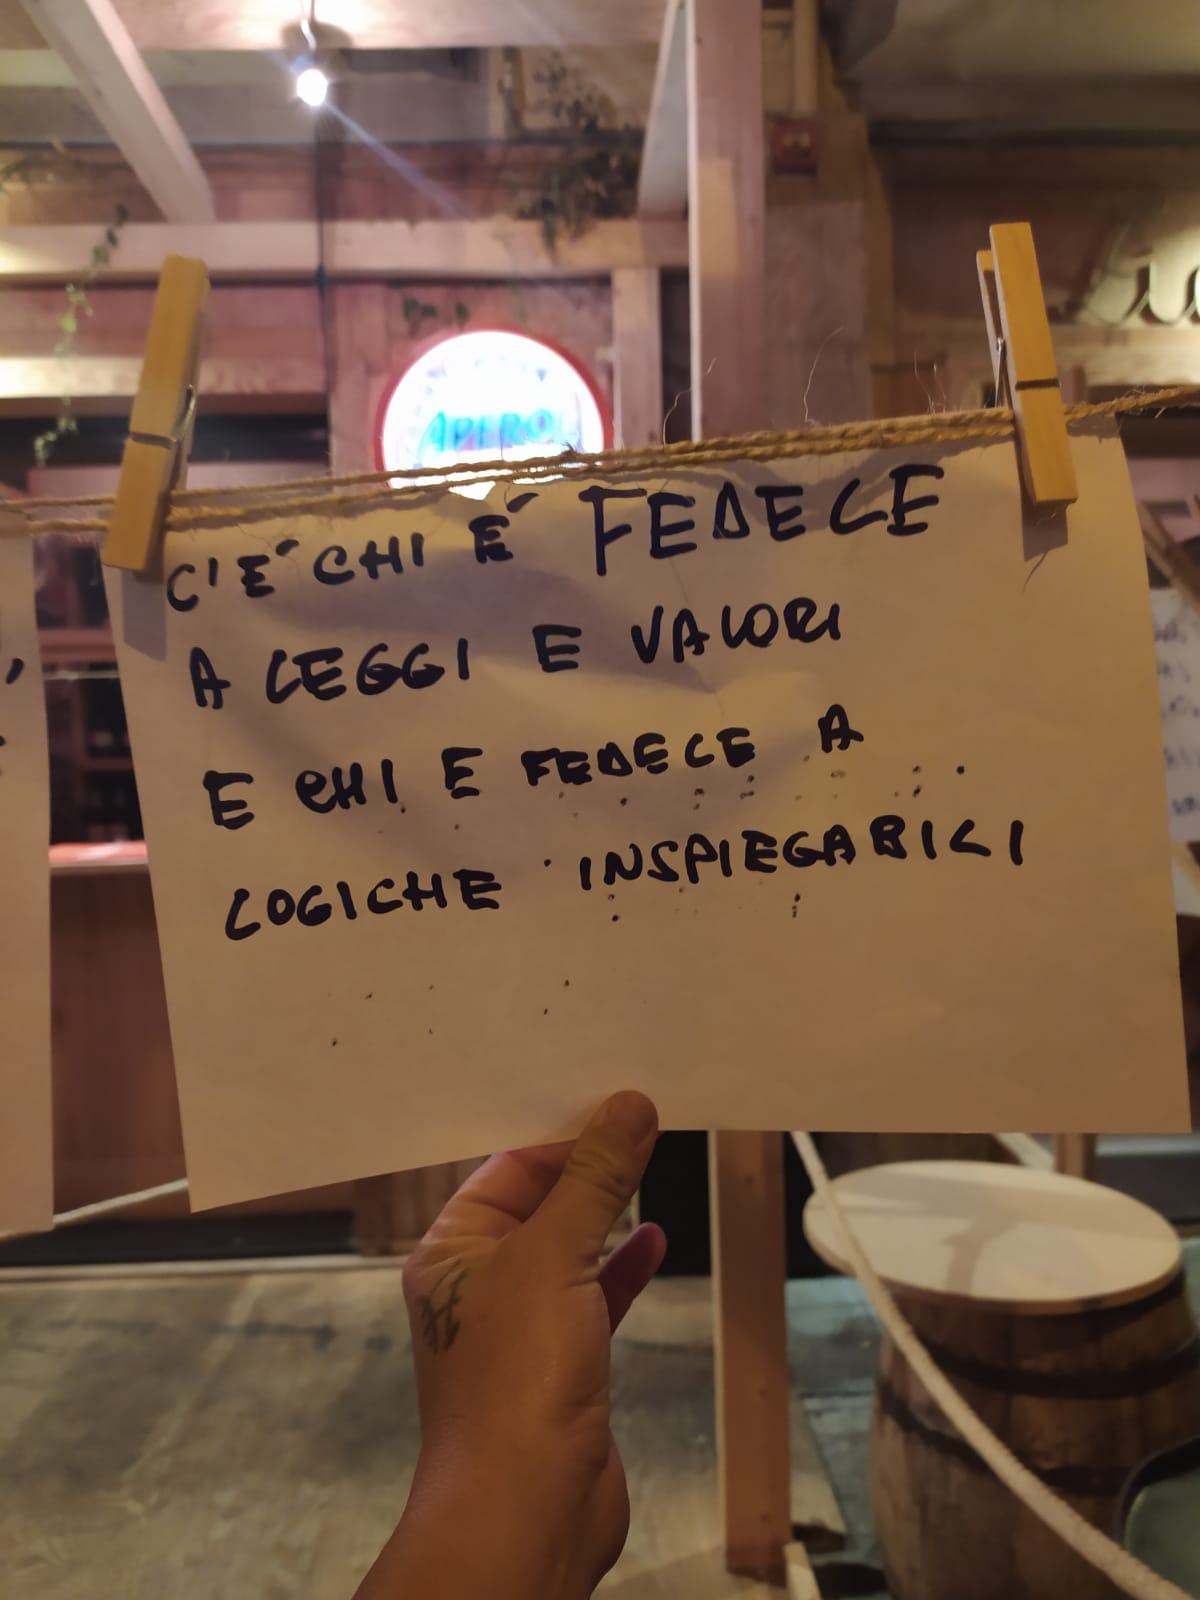 APEROL
C'E' CHI E' FEDELE
A LEGGI E VALORI
E CHI E FEDELE A
LOGICHE INSPIEGABILI